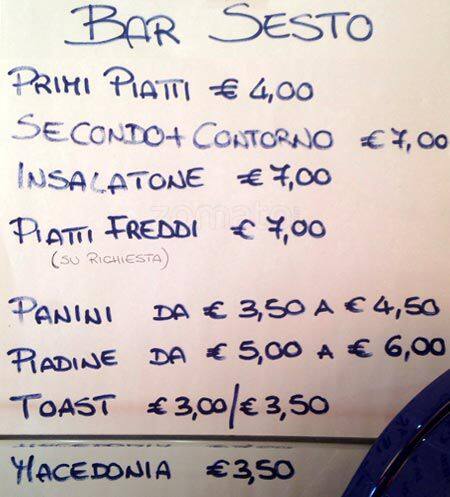 BAR SESTO
PRIMI PIATTI € 4,00
SECONDO + CONTORNO € 7,00
INSALATONE € 7,00
zomato
PIATTI FREDDI € 7,00
(SU RICHIESTA)
PANINI DA € 3,50 A € 4,50
PIADINE DA € 5,00 A € 6,00
TOAST € 3,00/€ 3,50
MACEDONIA € 3,50